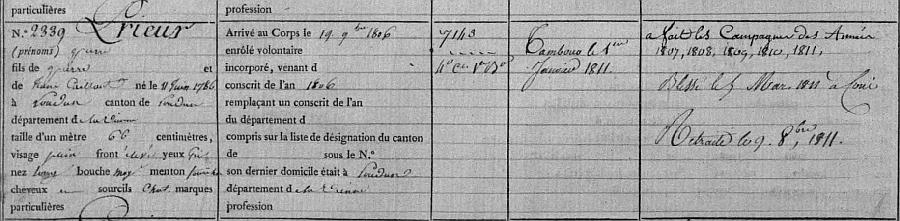 particulières
profession
N.° 2339 Prieur
(prénoms) pierre
fils de pierre et
de né le 11 Juin 1786
à Loudun canton de Loudun
département d e la Vienne
taille d'un mètre 66 centimètres,
visage plein front yeux gris
nez long bouche moy menton
cheveux sourcils Chat. marques
particulières
Arrivé au Corps le 19 9bre 1806
enrôlé volontaire
incorporé, venant d
conscrit de l'an 1806
remplaçant un conscrit de l'an
du département d
compris sur la liste de désignation du canton
de sous le N.°
son dernier domicile était à Loudun
département d e la Vienne
profession
7143
4e Cie
Tambour le 1er
Janvier 1811.
a fait les Campagnes des Années
1807, 1808, 1809, 1810, 1811.
Blessé le 5 Mars 1811 à
Retraité le 9. 8bre, 1811.